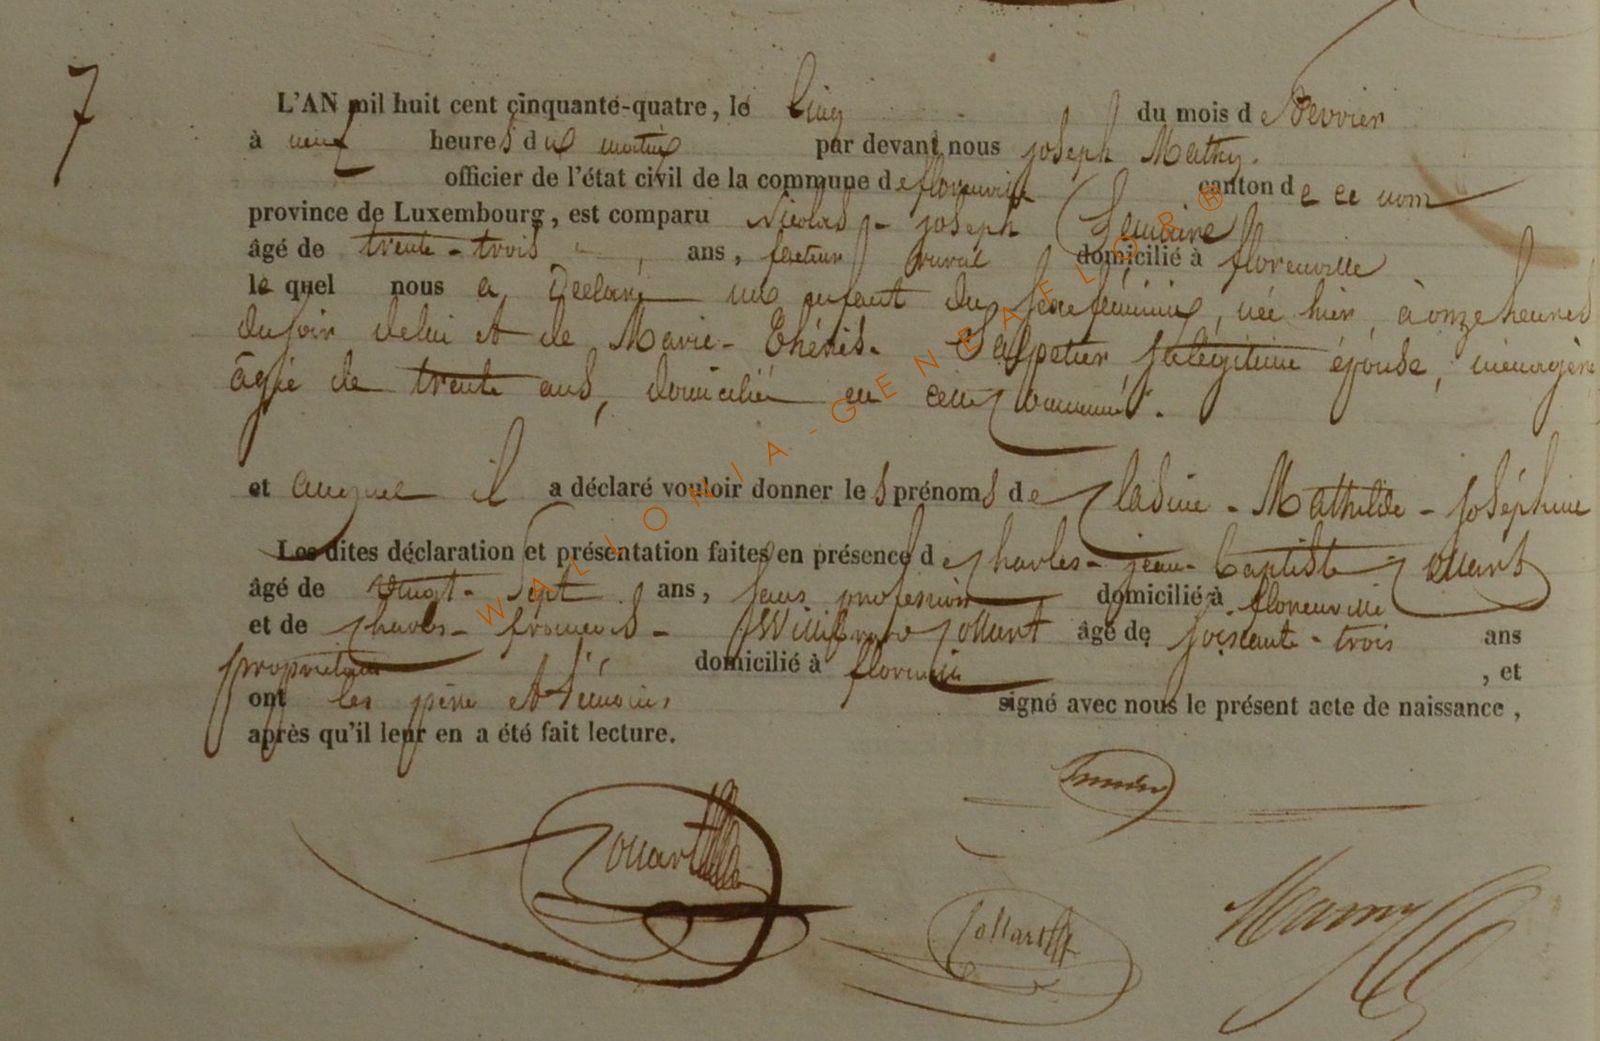 7
L'AN mil huit cent cinquante-quatre, le Cinq du mois de fevrier
à neuf heures du matin par devant nous joseph Mathy.
officier de l'état civil de la commune de florenville canton de ce nom
province de Luxembourg, est comparu Nicolas-joseph Lemaire
âgé de trente-trois ans, facteur rural domicilié à florenville
le quel nous a déclaré un enfant du sexe féminin, née hier, à onze heures
du soir de lui et de Marie-Thérèse Salpetier sa légitime épouse, ménagère
âgée de trente ans, domiciliée en cette commune.
et auquel il a déclaré vouloir donner les prénoms de Mathilde-joséphine
Les dites déclaration et présentation faites en présence de charles-jean-baptiste Collart
âgé de vingt-sept ans, sans profession domicilié à florenville
et de charles-françois-Willibrord Collart âgé de soixante-trois ans
propriétaire domicilié à florenville, et
ont les père et témoins signé avec nous le présent acte de naissance,
après qu'il leur en a été fait lecture.
Lemaire
Collart
Collart
Mathy
WALLONIA-GENEAFLOR®